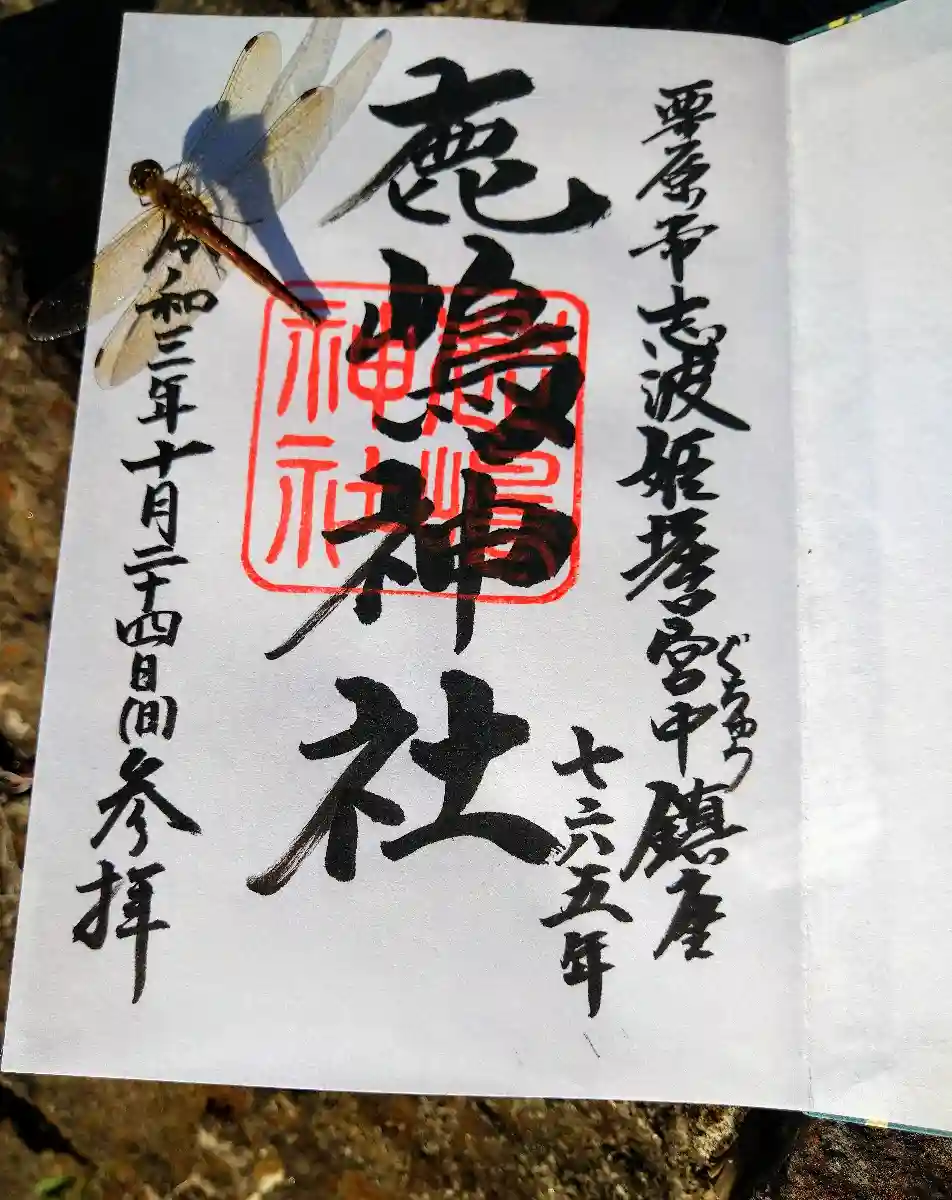 栗原市志波姫堀口宮中鎮座
ぐうちゅう
七六五年
鹿嶋神社
鹿嶋神社
令和三年十月二十四日(日)参拝